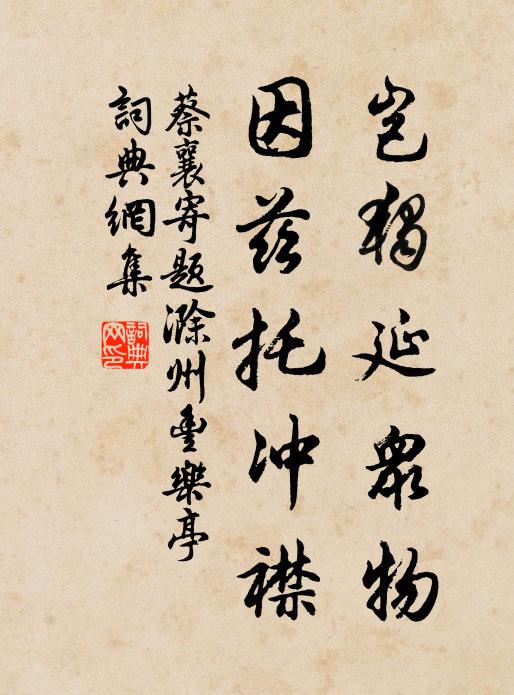 豈獨延眾物
因茲托沖襟
蔡襄寄題滁州豐樂亭
詞典網集
詞典網印